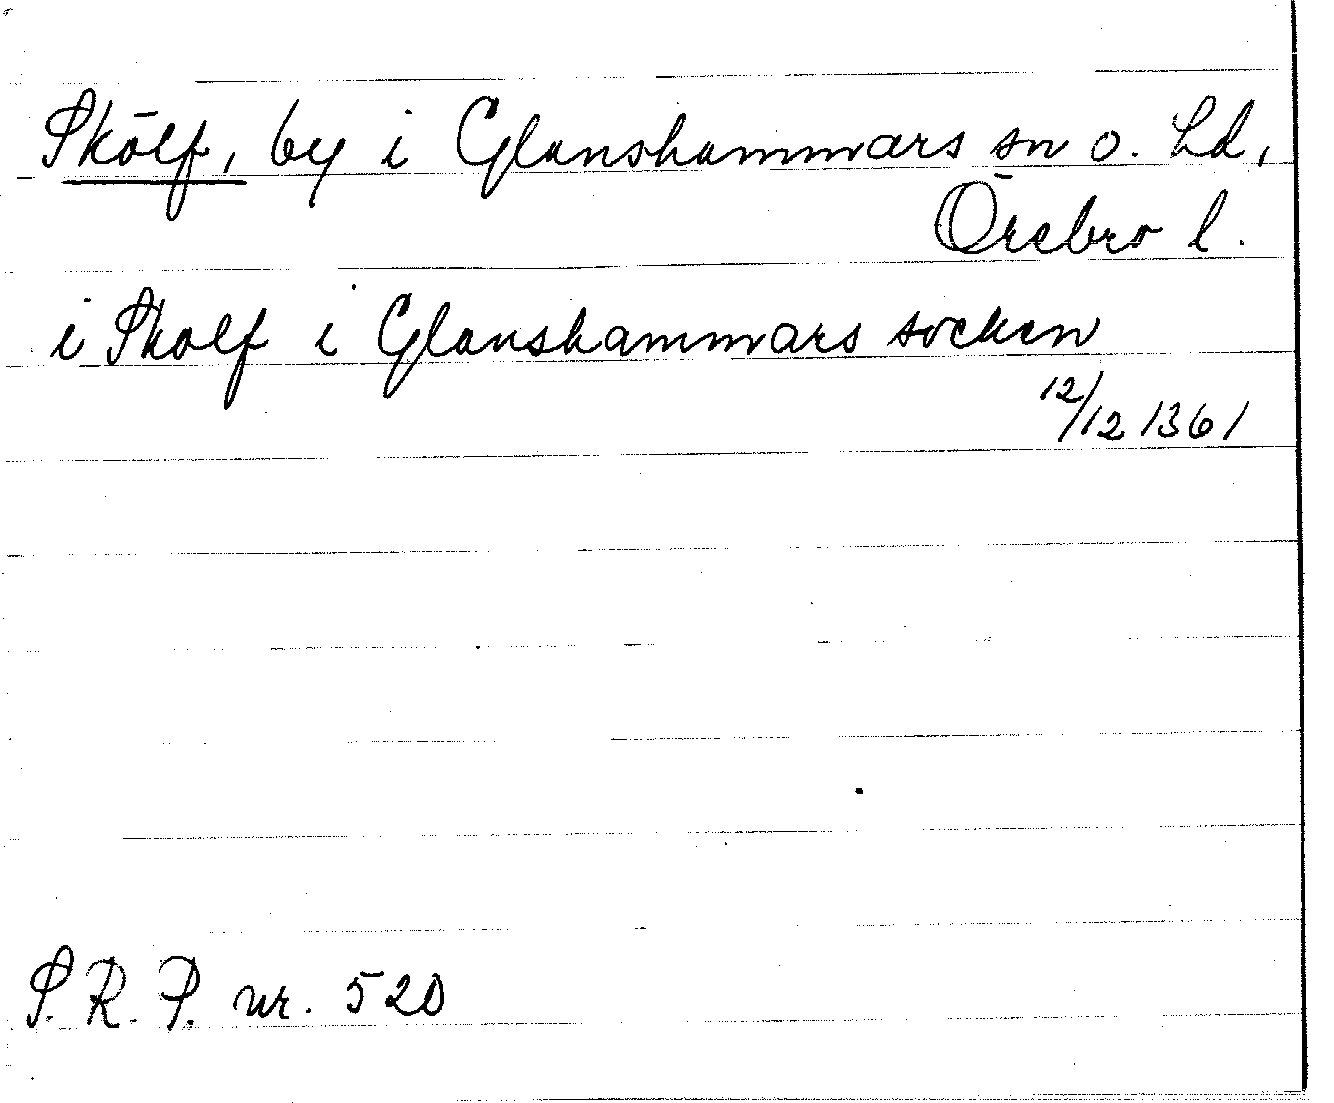 Skölf, by i Glanshammars sn o. hd,
Örebro l.
i Skolf i Glanshammars socken
12/12 1361
S.R.P. nr. 520